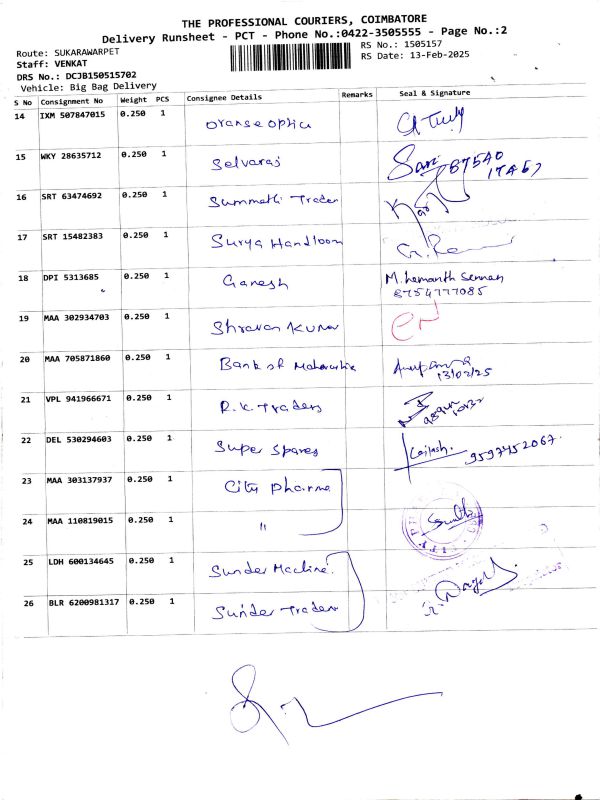 THE PROFESSIONAL COURIERS, COIMBATORE
Delivery Runsheet - PCT - Phone No.:0422-3505555 - Page No.:2
Route: SUKARAWARPET
RS No.: 1505157
Staff: VENKAT
RS Date: 13-Feb-2025
DRS No.: DCJB150515702
Vehicle: Big Bag Delivery
S No Consignment No Weight PCS Consignee Details Remarks Seal & Signature
14 IXM 507847015 0.250 1 Orange optics
15 WKY 28635712 0.250 1 Selvaraj
16 SRT 63474692 0.250 1 Summathi Trader
17 SRT 15482383 0.250 1 Surya Handloom
18 DPI 5313685 0.250 1 Ganesh M. hemanth Sennan
8754777085
19 MAA 302934703 0.250 1 Shravan Kumar
20 MAA 705871860 0.250 1 Bank of Maharashtra Anupama
13/02/25
21 VPL 941966671 0.250 1 R.K. Traders
22 DEL 530294603 0.250 1 Super Spares Kailash. 9597452067.
23 MAA 303137937 0.250 1 City Pharma
24 MAA 110819015 0.250 1 "
25 LDH 600134645 0.250 1 Sunder Machine
26 BLR 6200981317 0.250 1 Sunder Traders